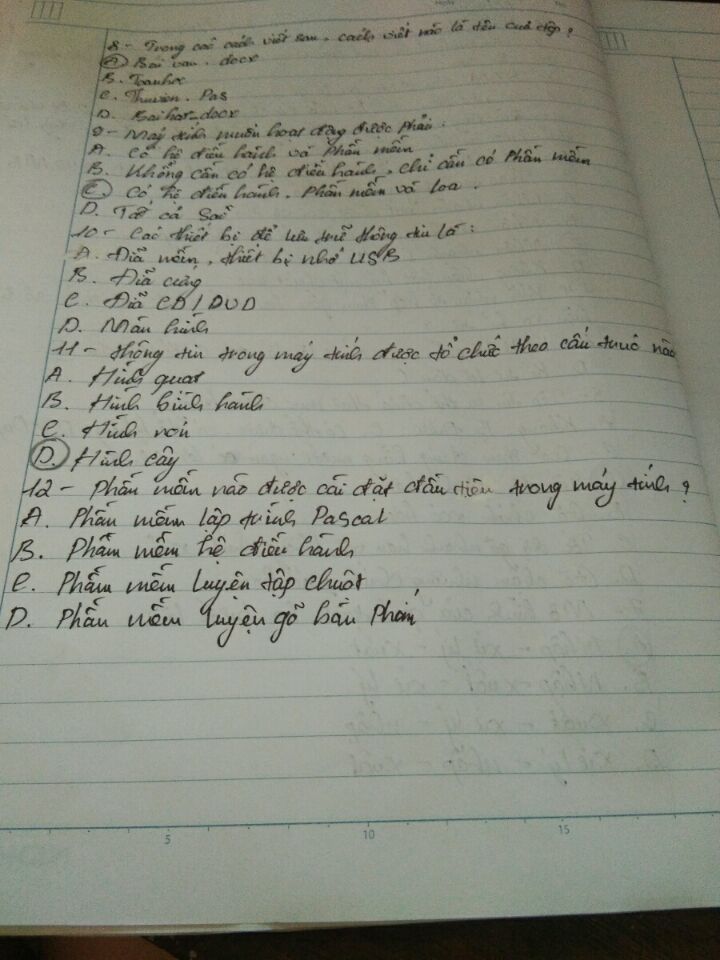 8- Trong các cách viết sau, cách viết nào là tên của tệp?
A. Bai van. docx
B. Toanhoc
C. Thuvien. Pas
D. Baihat-docx
9- Máy tính muốn hoạt động được phải:
A. Có hệ điều hành và phần mềm
B. Không cần có hệ điều hành, chỉ cần có phần mềm
C. Có hệ điều hành, phần mềm và loa.
D. Tất cả sai
10- Các thiết bị để lưu trữ thông tin là:
A. Đĩa mềm, thiết bị nhớ USB
B. Đĩa cứng
C. Đĩa CD/DVD
D. Màn hình
11- thông tin trong máy tính được tổ chức theo cấu trúc nào
A. Hình quạt
B. Hình bình hành
C. Hình nón
D. Hình cây
12- Phần mềm nào được cài đặt đầu tiên trong máy tính?
A. Phần mềm lập trình Pascal
B. Phần mềm hệ điều hành
C. Phần mềm luyện tập chuột
D. Phần mềm luyện gõ bàn phím
5 10 15